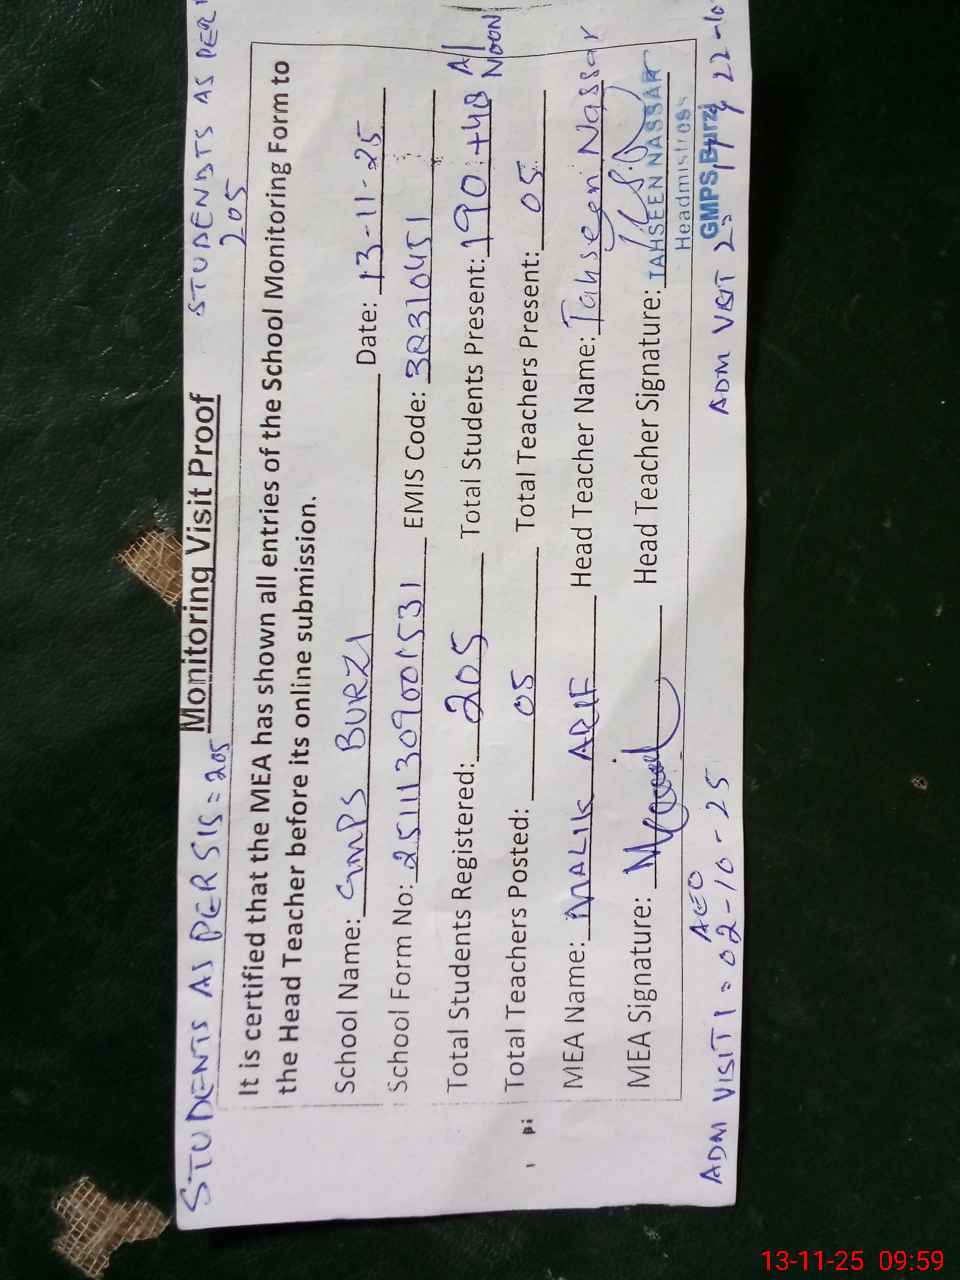 STUDENTS AS PER SIS = 205
STUDENTS AS PER
205
Monitoring Visit Proof
It is certified that the MEA has shown all entries of the School Monitoring Form to
the Head Teacher before its online submission.
School Name: GMPS BURZI Date: 13-11-25
School Form No: EMIS Code:
Total Students Registered: 205 Total Students Present: 190
NOON
Total Teachers Posted: 05 Total Teachers Present: 05
MEA Name: MALIK ARIF Head Teacher Name: Tahseen Nassar
MEA Signature: Head Teacher Signature:
TAHSEEN NASSAR
Headmistress
GMPS, Burzi
AEO
ADM VISIT 1 = 02-10-25
ADM VISIT 2 = 22-10
13-11-25 09:59